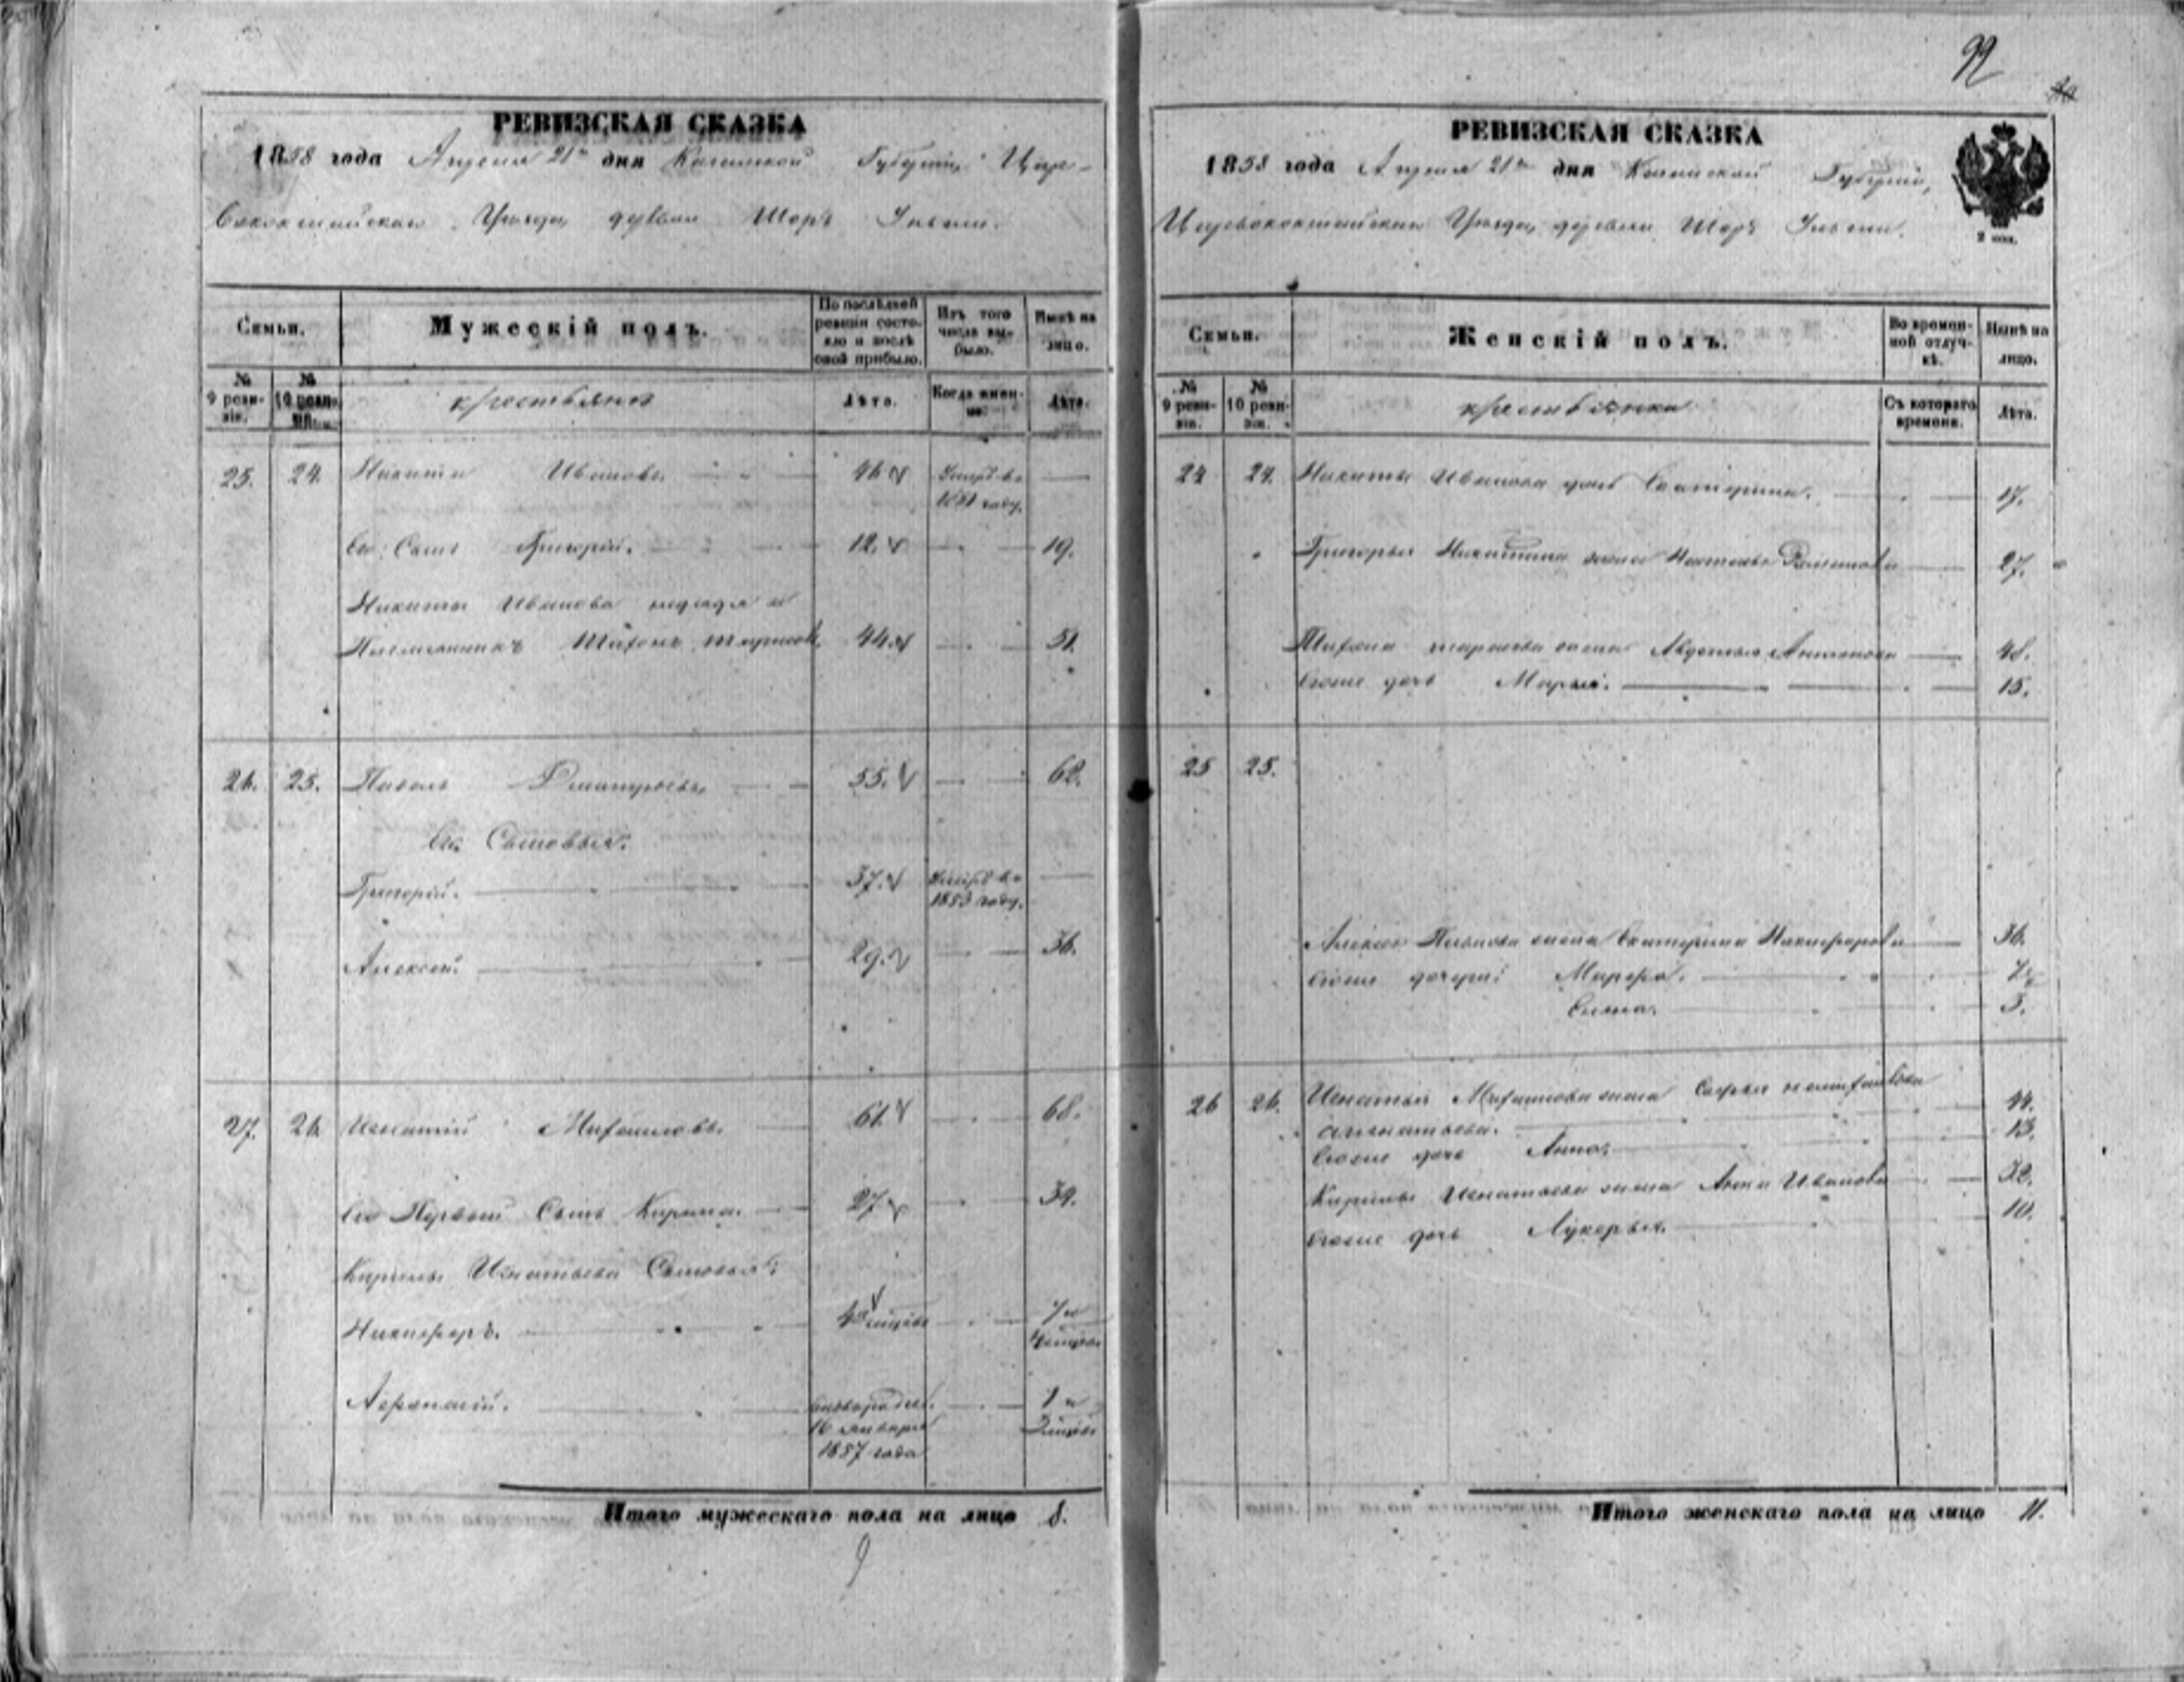 92
РЕВИЗСКАЯ СКАЗКА
1858 года Апреля 21го дня Казанской Губернии, Царе-
вококшайскаго Уезда, деревни Шоръ
Семьи.
Мужескій полъ.
По послѣдней ревизіи состояло и послѣ оной прибыло.
Изъ того числа выбыло.
Нынѣ на лицо.
№ 9 ревизіи.
№ 10 ревизіи.
крестьяне
Лѣта.
Когда именно.
Лѣта.
25. 24. Никита Ивановъ 46 Умръ въ
1851 году.
Его Сынъ Григорій. 12. 19.
Никиты Иванова
Племянникъ 44. 51.
26. 25. Павелъ Дмитріевъ 55. 62.
Его Сыновья:
Григорій. 37. Умръ въ
1853 году.
Алексей. 29. 36.
27. 26. Игнатій 61. 68.
Его Первый Сынъ Кирила. 27 34.
Кирилы Игнатьева Сыновья:
Никифоръ. 7 и
Афанасій. 1 и
16 января
1857 года
Итого мужескаго пола на лицо 8.
9
РЕВИЗСКАЯ СКАЗКА
1858 года Апреля 21го дня Казанской Губерніи,
Царевококшайскаго Уезда, деревни Шоръ
2 коп.
Семьи.
Женскій полъ.
Во временной отлучкѣ.
Нынѣ на лицо.
№ 9 ревизіи.
№ 10 ревизіи.
крестьянки
Съ котораго времени.
Лѣта.
24 24. Никиты Иванова дочь Екатерина. 17.
Григорья Никитина жена Настасья 27.
жена Авдотья Антонова 48.
Ево же дочь Марья. 15.
25 25.
Алексея Павлова жена Екатерина Никифорова 36.
Ево же дочери: Марфа. 7
3.
26 26. Игнатья жена Софья
44.
Ево же дочь Анна. 13.
Кирилы Игнатьева жена Анна Иванова 32.
Ево же дочь Лукерья. 10.
Итого женскаго пола на лицо 11.